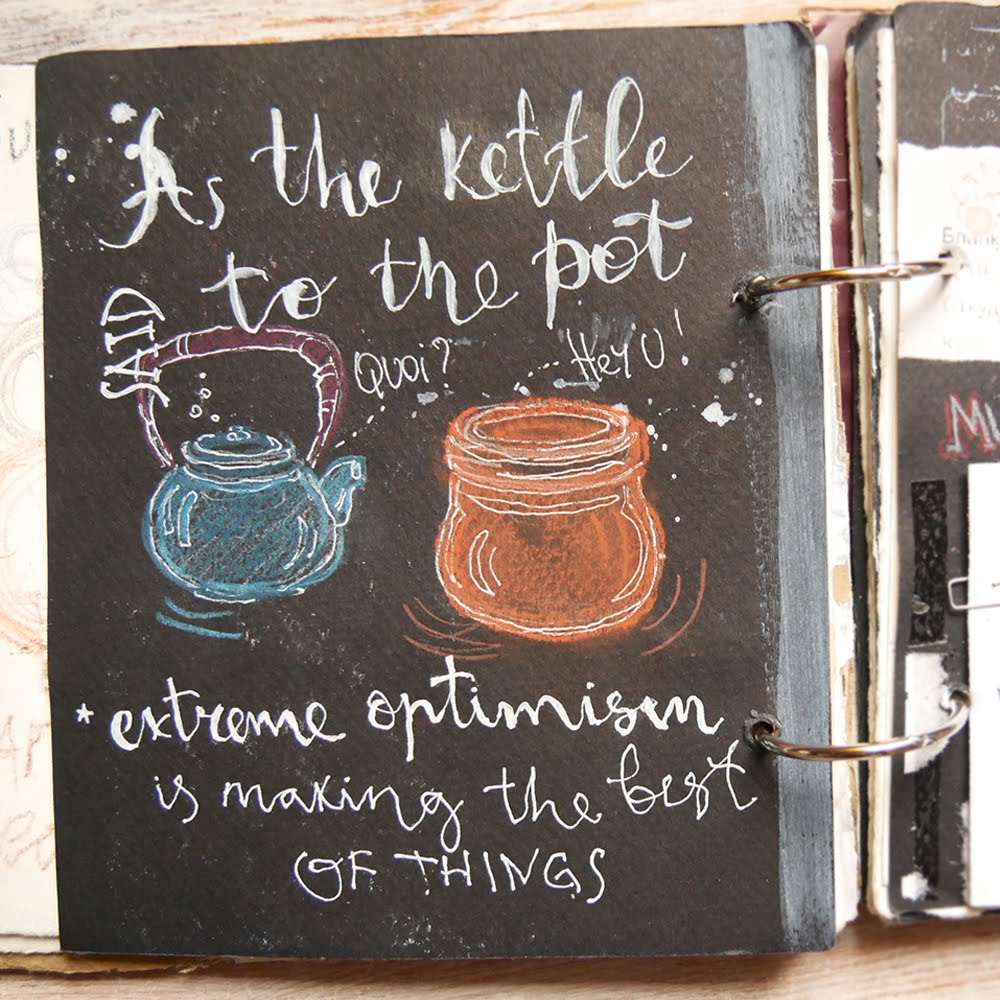 As the kettle
SAID to the pot
Quoi?
Hey U!
* extreme optimism
is making the best
OF THINGS